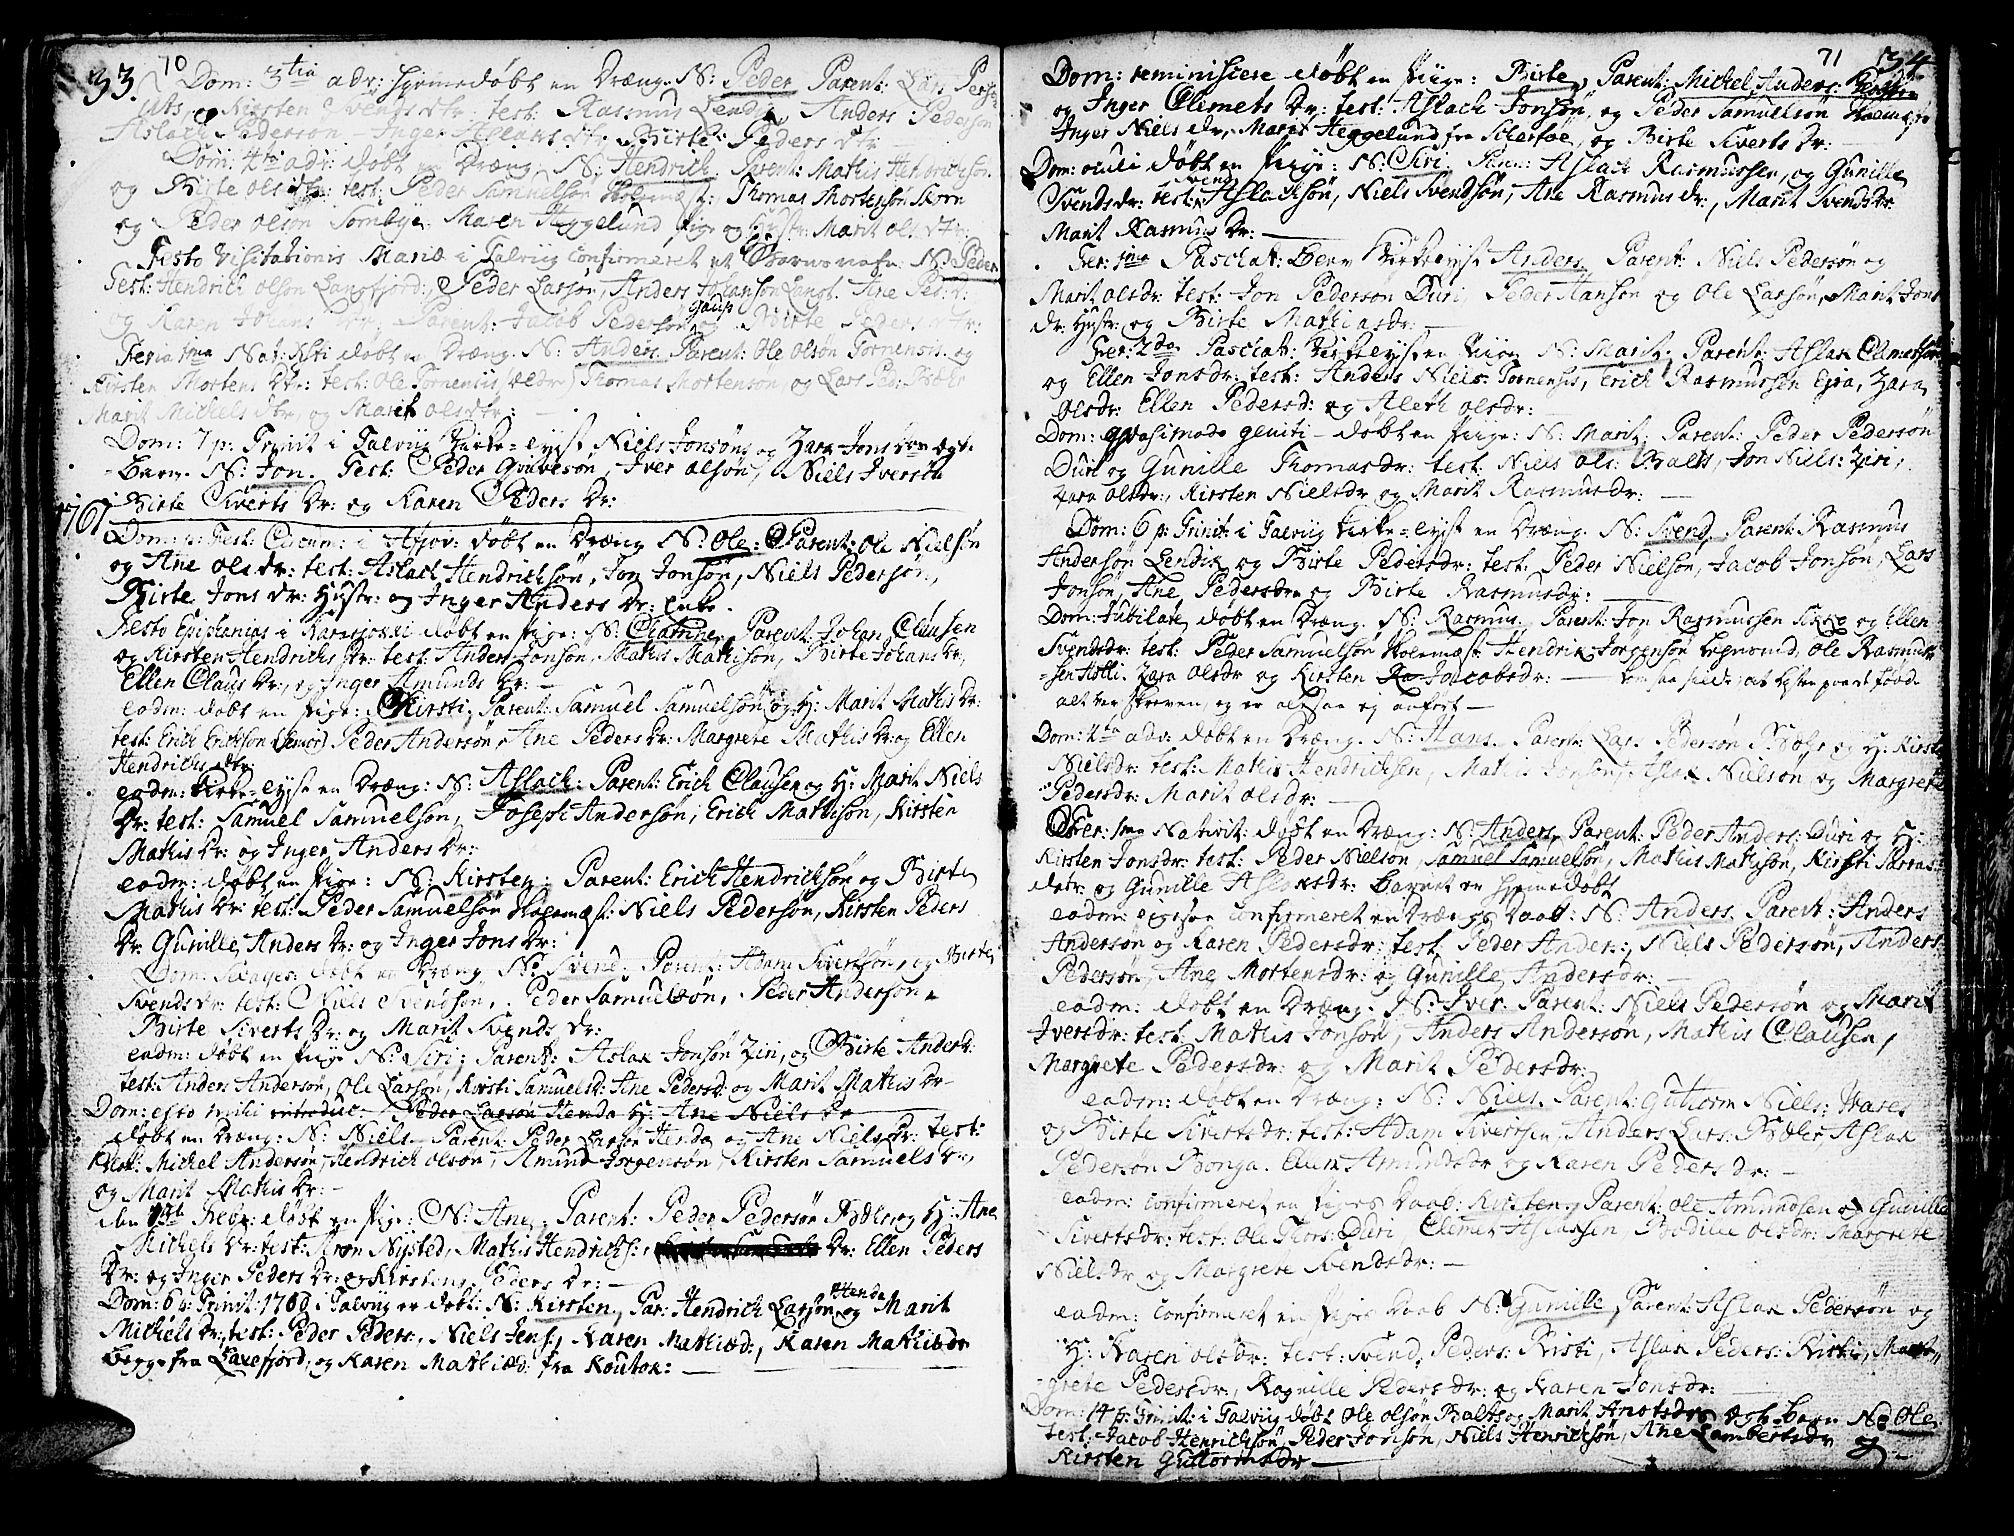 33. 70
Dom: 3tia adv: hjemedøbt en Dræng. N: Peder Parent: Lars
og Kirsten Svends dtr: test: Rasmus Lendix Anders Pederson
Aslach Pederson Inger Aslaks dtr Birte Peders dtr
Dom: 4ta adv: døbt en Dræng N: Hendrich Parent: Mathis Hendrichson
og Birte ols dtr: test: Peder Samuelson Thomas Mortenson
og Peder olson Maren Heggelund Pige og Hustr: Marit ols dtr:
Festo Visitationis Mariæ i Talviig Confirmeret et Barns nafn N: Peder
Test: Hendrich olson Langfjord, Peder Larson, Anders Johanson Ane Ped:
og Karen Johans dtr, Parent: Jacob Pederson Gaup og Birte Peders dtr:
Feria 1ma Nat: Xsti døbt en Dræng. N: Anders Parent: Ole olson Tornensis og
Kirsten Mortens dr: test: Ole Tornensis (eldr) Thomas Mortenson, og Lars Ped:
Marit Michels dtr, og Marit ols dtr: —
Dom: 7 p: Trinit i Talviig Kirke-lyst Niels Jonsøns og Zara Jons dr ægte
Barn. N: Jon. Test: Peder Iver olsøn, Niels Iversøn
Birte Siverts dr: og Karen Peders dr:
1761
Dom: p: Fest: Circum: i døbt en Dræng N: Ole: Parent: Ole Nielsøn
og Ane ols dr: test: Aslach Hendrichsøn, Jon Jonsøn, Niels Pedersøn,
Birte Jons dr: Hustr: og Inger Anders dr: Enke.
Festo Epiphanias i Karasjocki døbt en Pige: N: Parent: Johan Clausen
og Kirsten Hendrichs dr: test: Anders Jonsøn, Mathis Mathisøn, Birte Johans dr,
Ellen Claus dr:, og Inger Amunds dr: —
eadm: døbt en Pige: Kirsti, Parent: Samuel Samuelsøn og H: Marit Mathis dr:
test: Erich Erichsøn (Senior) Peder Andersøn, Ane Peders dr: Margrete Mathis dr: og Ellen
Hendrichs dtr:
eadm: Kirke-lyst en Dræng: N: Aslach: Parent: Erich Clausen og H: Marit Niels
dr: test: Samuel Samuelsøn, Joseph Andersøn, Erich Mathisøn, Kirsten
Mathis dr: og Inger Anders dr:
eadm: døbt en Pige: N: Kirsten, Parent: Erich Hendrichsøn og Birte
Mathis dr: test: Peder Samuelsøn Niels Pedersøn, Kirsten Peders
dr: Gunille Anders dr: og Inger Jons dr:
Dom: døbt en Dræng N: Svend, Parent: Adam Sivertsøn, og Birte
Svends dr: test: Niels Svendsøn, Peder Samuelsøn, Peder Andersøn,
Birte Siverts dr: og Marit Svends dr:
eadm: døbt en Pige N: Siri, Parent: Aslak Jonsøn Ziri, og Birte Anders dr:
test: Anders Andersøn, Ole Larsøn, Kirsti Samuelsd: Ane Pedersd: og Marit Mathis dr—
Dom: esto mihi introduc: Peder Larsøn Henda H: Ane Niels dr
døbt en Dræng: N: Niels. Parent: Peder Larsøn Henda og Ane Niels dr: test:
Michel Andersøn, Hendrich olsøn, Amund Jorgensøn, Kirsten Samuels dr,
og Marit Mathis dr: —
den Febr: døbt en Pige: N: Ane, Parent: Peder Pedersøn og H: Ane
Michels dr: test: Aron Nysted, Mathis Hendrichs: dr: Ellen Peders
dr: og Inger Peders dr: og Kirsten Peders dr: —
Dom: 6 p: Trinit: 1760 i Talviig er døbt: N: Kirsten, Par: Hendrich Larsøn Henda og Marit
Michels dr, test: Peder Peders:, Niels Jens:, Karen Mathiæd:, Karen Mathiædr
begge fra Laxefjord, og Karen Mathiæd: fra Koutok: —
71 34
Dom: reminiscere døbt en Piige: Birte, Parent: Michel Anders:
og Inger Clemets dr: test: Aslach Jonsøn, og Peder Samuelsøn
Inger Niels dr, Marit Heggelund fra og Birte Siverts dr: —
Dom: oculi døbt en Piige: N: Siri Paren: Aslach Rasmussen, og Gunille
Svends dr: test: Svend Aslachsøn, Niels Svendsøn, Ane Rasmus dr:, Marit Svends dr:
Marit Rasmus dr: —
Fer: 1ma Paschat: Kirkelyst Anders Parent: Niels Pedersøn og
Marit olsdr: test: Jon Pedersøn Duri, Peder Hansøn og Ole Larsøn, Marit Jons
dr: Hustr: og Birte Mathiasdr: —
Fer: 2da Paschat: Kirkelyst en Piige N: Marit, Parent: Aslak Clemetsøn
og Ellen Jonsdr: test: Anders Niels: Tornensis, Erich Rasmussen Zara
Olsdr: Ellen Pedersd: og Aleth olsdr: —
Dom: qvasimodo geniti — døbt en Piige: N: Marit. Parent: Peder Pedersøn
Duri og Gunille Thomasdr: test: Niels ols: Balto, Jon Niels: Ziri,
Zara olsdr:, Kirsten Nielsdr og Marit Rasmusdr: —
Dom: 6 p: Trinit: i Talviig Kirke-lyst en Dræng. N: Svend, Parent: Rasmus
Andersøn Lendix og Birte Pedersdr: test: Peder Nielsøn, Jacob Jonsøn, Lars
Jonsøn, Ane Pedersdr og Birte Rasmusdr: —
Dom: Jubilate døbt en Dræng. N: Rasmus, Parent: Jon Rasmussen og Ellen
Svendsdr: test: Peder Samuelsøn Hendrik Jørgensøn Ole Rasmus-
-sen Zara olsdr og Kirsten Jacobsdr: —
alt skreven, og er altsaa ej anført —
Dom: 4ta adv: døbt en Dræng. N: Hans. Parent: Lars Pedersøn og H: Kirsten
Nielsdr: test: Mathis Hendrichsen, Mathis Jonsøn, Aslak Nielsøn og Margrete
Pedersdr: Marit olsdr: —
Fer: 1ma Nativit: døbt en Dræng: N: Anders, Parent: Peder Anders: Duri og H:
Kirsten Jonsdr: test: Peder Nielsøn, Samuel Samuelsøn, Mathis Mathisøn, Kirsti
datr: og Gunille Aslaksdr: Barnet er hjemedøbt
eadm: Confirmeret en Drængs Daab: N: Anders, Parent: Anders
Andersøn og Karen Pedersdr: test: Peder Anders:, Niels Pedersøn, Anders
Pedersøn, Ane Mortensdr: og Gunille Andersdr: —
eadm: døbt en Dræng. N: Iver. Parent: Niels Pedersøn og Marit
Iversdr: test: Mathis Jonsøn, Anders Andersøn, Mathis Clausen,
Margrete Pedersdr: og Marit Pedersdr:
eadm: døbt en Dræng: N: Niels. Parent: Guttorm Niels:
og Birte Sivertsdr: test: Adam Sivertsen, Anders Lars: Aslak
Pedersøn Bonga. Ellen Amundsdr og Karen Peders dr: —
eadm: Confirmeret en Piges Daab: Kirsten, Parent: Ole Amundsen og Gunille
Sivertsdr: test: Ole Thors: Duri, Clemet Aslaksen Bodille olsdr: Margrete
Nielsdr og Margrete Svendsdr: —
eadm: Confirmeret en Piges Daab N: Gunille, Parent: Aslak Pedersøn og
H: Karen olsdr: test: Svend Peders: Kristi, Aslak Peders: Kristi, Mar-
grete Pedersdr:, Ragnille Peders dr: og Karen Jonsdr: —
Dom: 14 p: Trinit: i Talviig døbt Ole olsøn Balto og Marit ægte barn N: Ole
test: Jacob Henrichsøn, Peder Jonsøn, Niels Henrichsøn, Ane Lambertsdr
Kirsten Guttormsdr —